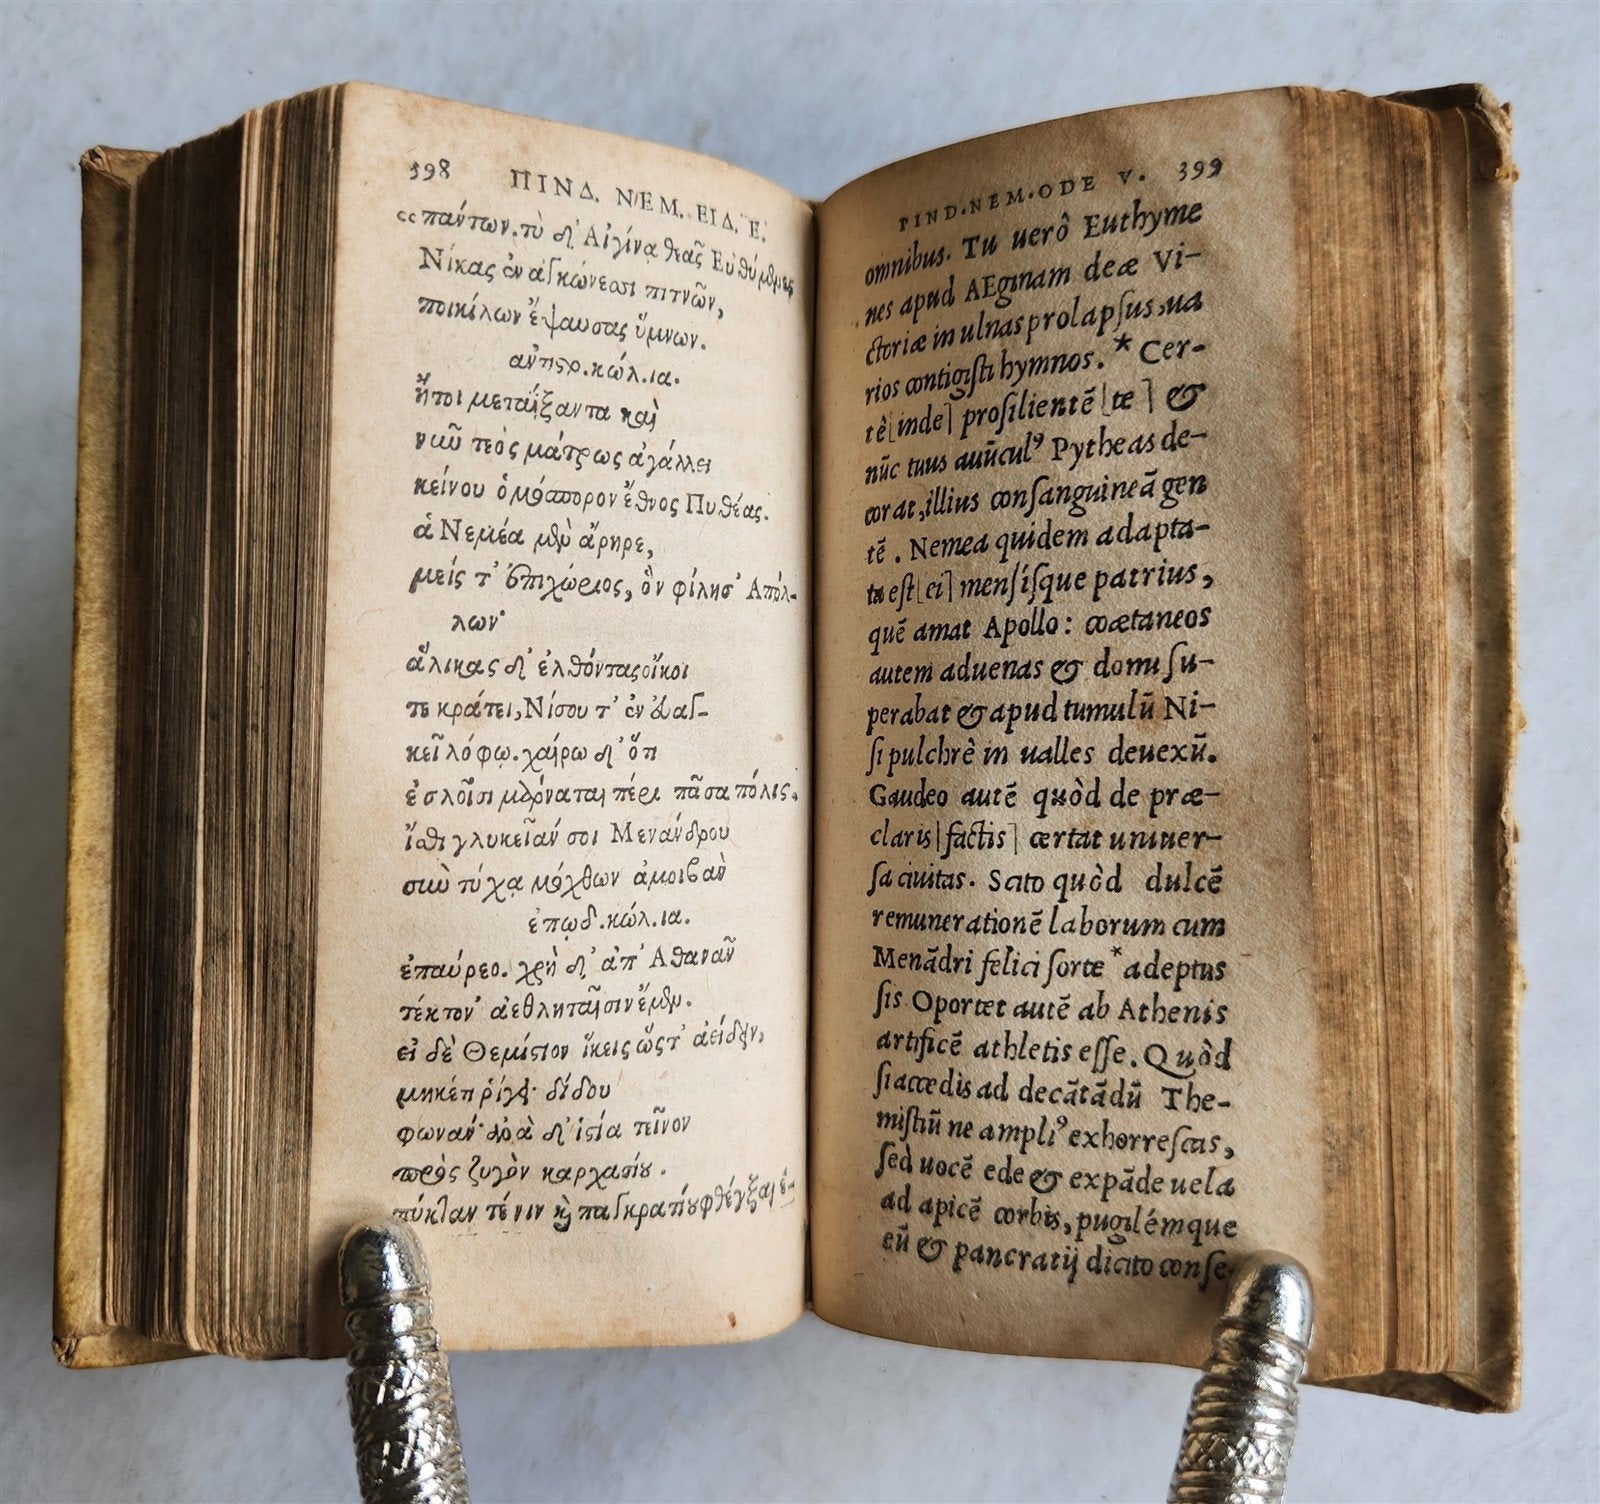 398 ΠΙΝΔ. ΝΕΜ. ΕΙΔ. Ε.
“παντων. τὺ δ' Αἰγίνᾳ θεᾶς Εὐθύμενες
Νίκας ἐν ἀγκώνεσσι πιτνῶν,
ποικίλων ἔψαυσας ὕμνων.
ἀντιστρ. κώλ. ια.
ἤτοι μεταΐξαντα καὶ
νῦν τεὸς μάτρως ἀγάλλει
κείνου ὁμόσπορον ἔθνος Πυθέας.
ἁ Νεμέα μὲν ἄρηρε,
μείς τ' ἐπιχώριος, ὃν φίλησ' Απόλ-
λων·
ἅλικας δ' ἐλθόντας οἴκοι
τε κράτει, Νίσου τ' ἐν εὐαγ-
κεῖ λόφῳ. χαίρω δ' ὅτι
ἐσλοῖσι μάρναται πέρι πᾶσα πόλις.
ἴσθι γλυκεῖάν σοι Μενάνδρου
σὺν τύχᾳ μόχθων ἀμοιβὰν
ἐπῳδ. κώλ. ια.
ἐπαύρεο. χρὴ δ' ἀπ' Αθανᾶν
τέκτον' ἀεθληταῖσιν ἔμεν.
εἰ δὲ Θεμίστιον ἵκεις ὥστ' ἀείδειν,
μηκέτι ῥίγει· δίδου
φωνάν· ἀνὰ δ' ἱστία τεῖνον
πρὸς ζυγὸν καρχασίου.
πύκταν τέ νιν καὶ παγκρατίου φθέγξαι ἑ-
PIND. NEM. ODE V. 399
omnibus. Tu uerò Euthyme
nes apud AEginam deæ Vi-
ctoriæ in ulnas prolapsus, ua
rios contigisti hymnos. * Cer-
tè [inde] prosilientē [te] &
nūc tuus auūculꝰ Pytheas de-
corat, illius consanguineā gen
tē. Nemea quidem adapta-
ta est [ei] mensísque patrius,
quē amat Apollo: coætaneos
autem aduenas & domi su-
perabat & apud tumulū Ni-
si pulchrè in ualles deuexū.
Gaudeo autē quòd de præ-
claris [factis] certat uniuer-
sa ciuitas. Scito quòd dulcē
remunerationē laborum cum
Menādri felici sorte * adeptus
sis. Oportet autē ab Athenis
artificē athletis esse. Quòd
si accedis ad decātādū The-
mistiū ne ampliꝰ exhorrescas,
sed uocē ede & expāde uela
ad apicē corbis, pugilémque
eū & pancratij dicito conse-